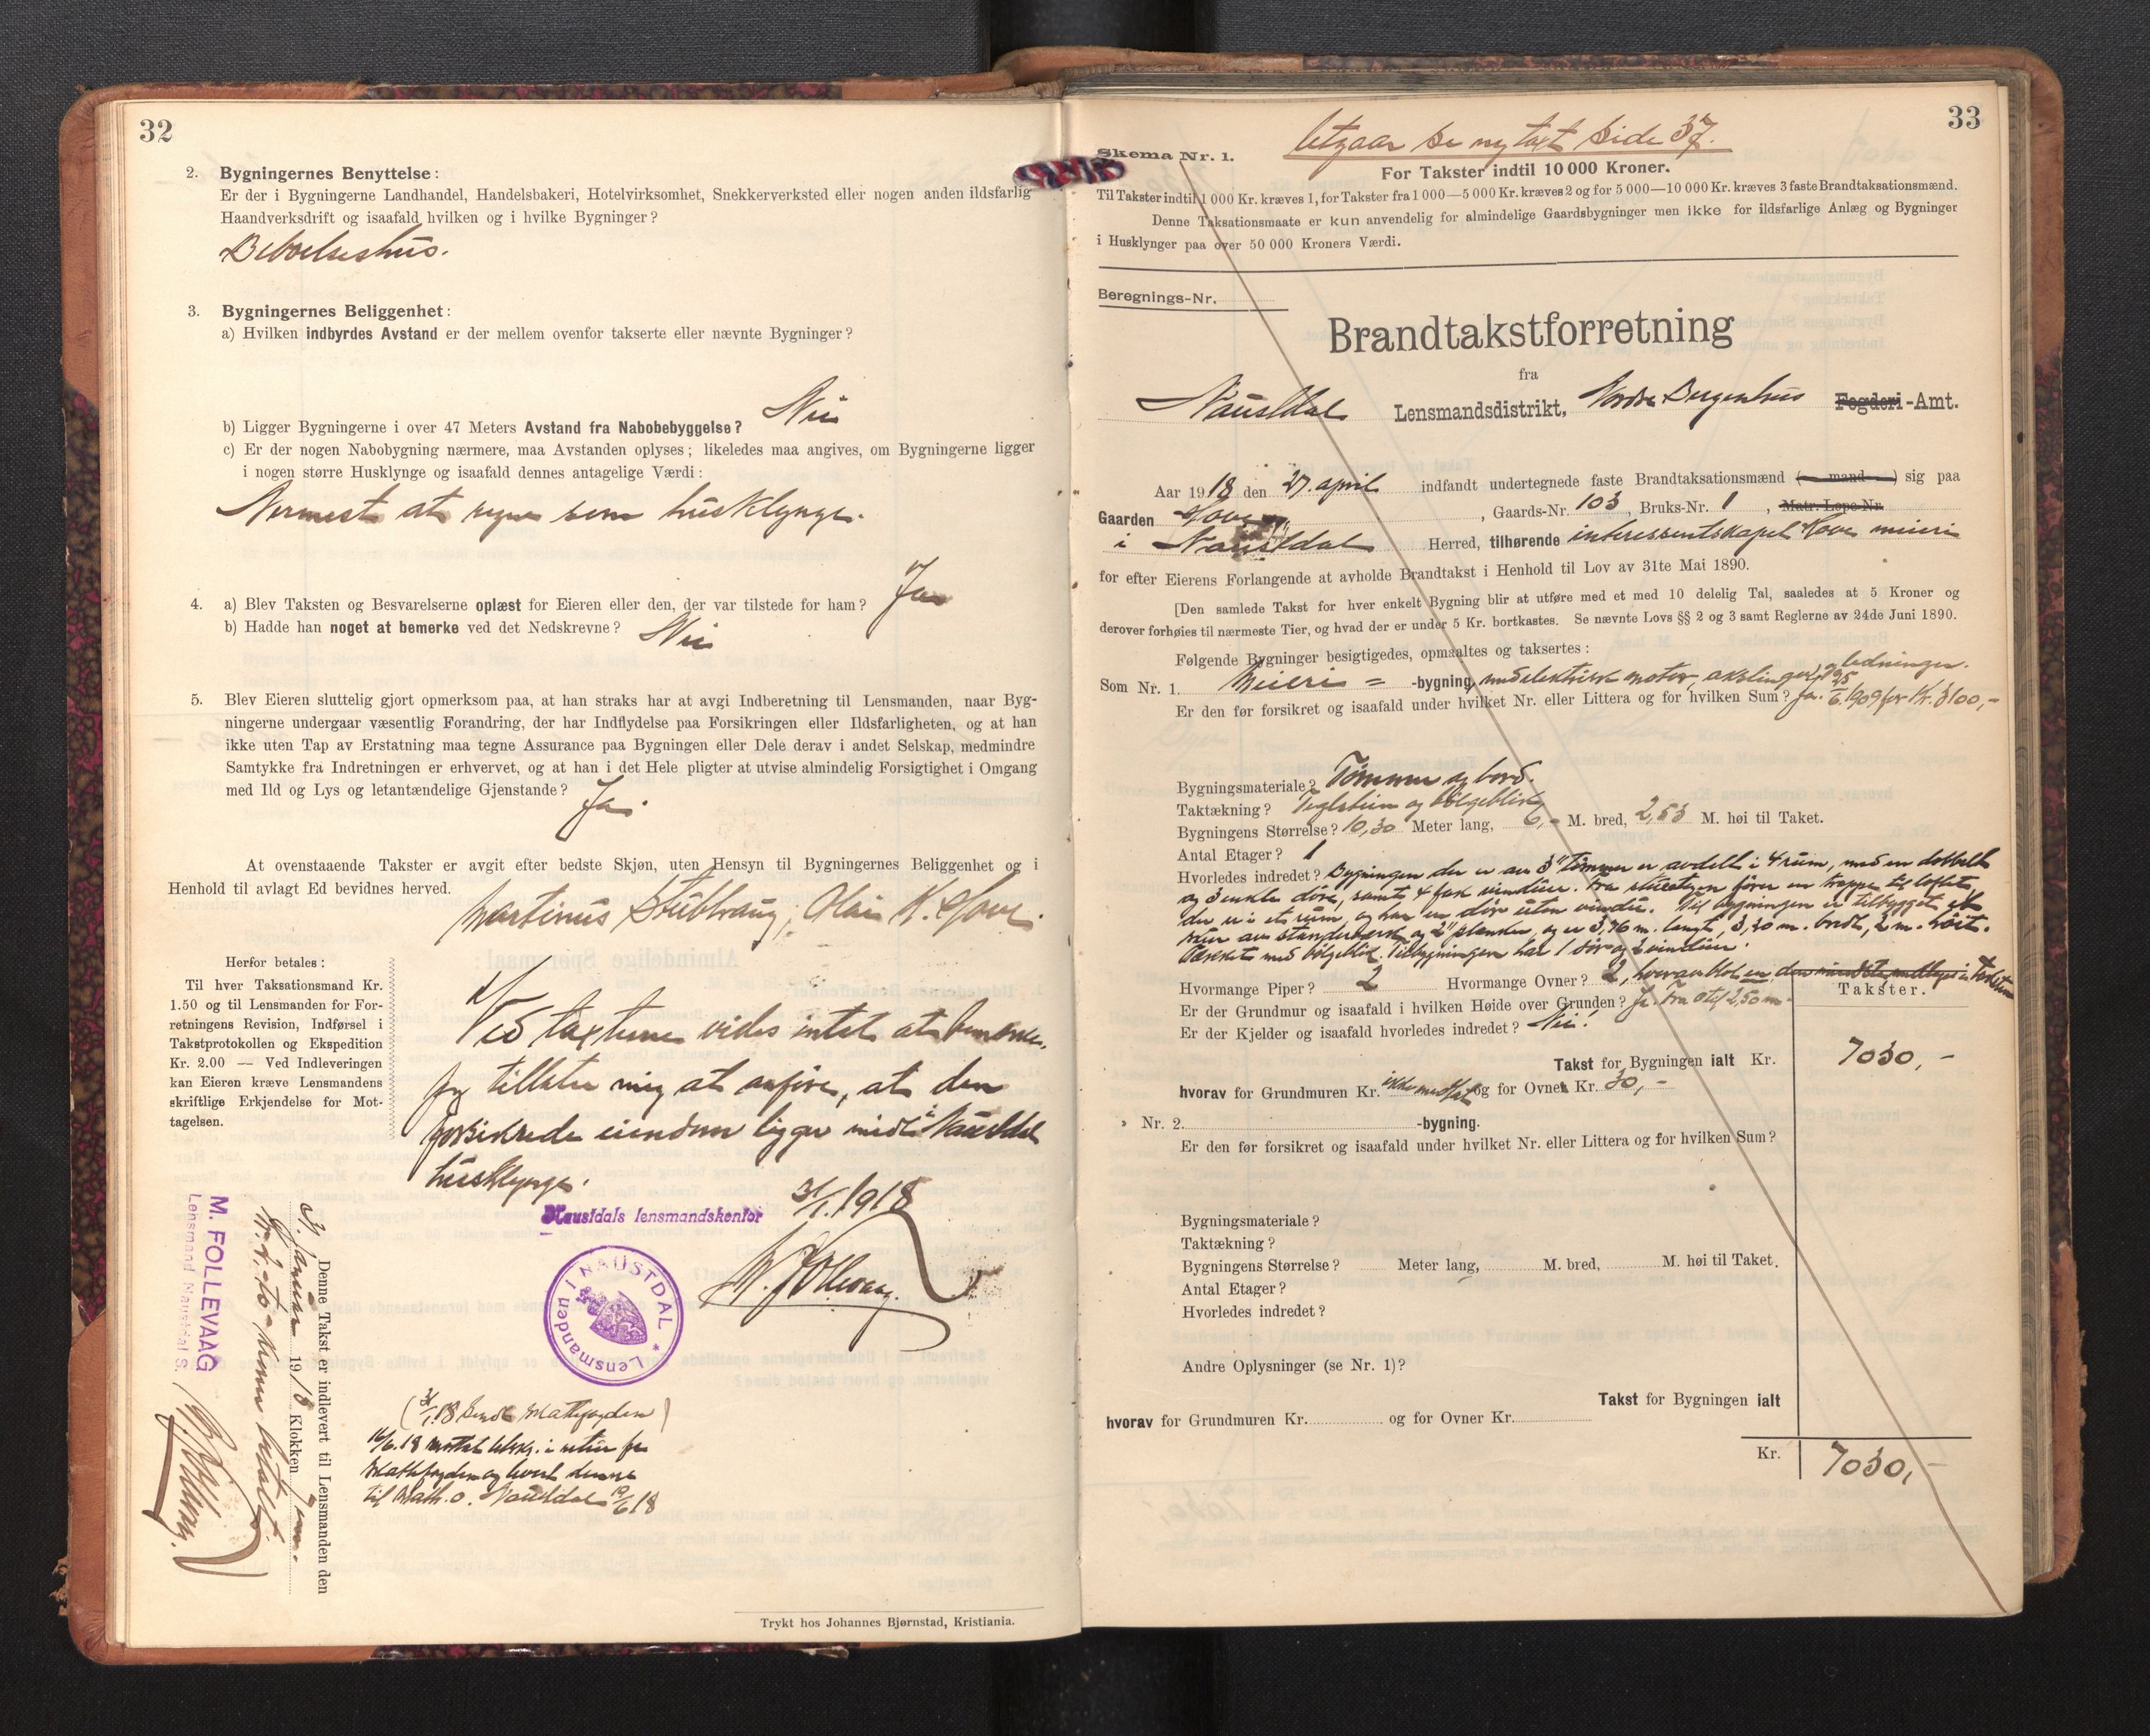 32
2. Bygningernes Benyttelse:
Er der i Bygningerne Landhandel, Handelsbakeri, Hotelvirksomhet, Snekkerverksted eller nogen anden ildsfarlig
Haandverksdrift og isaafald hvilken og i hvilke Bygninger?
Beboelseshus.
3. Bygningernes Beliggenhet:
a) Hvilken indbyrdes Avstand er der mellem ovenfor takserte eller nævnte Bygninger?
b) Ligger Bygningerne i over 47 Meters Avstand fra Nabobebyggelse? Nei
c) Er der nogen Nabobygning nærmere, maa Avstanden oplyses; likeledes maa angives, om Bygningerne ligger
i nogen større Husklynge og isaafald dennes antagelige Værdi:
Nermest at regne som husklynge.
4. a) Blev Taksten og Besvarelserne oplæst for Eieren eller den, der var tilstede for ham? Ja
b) Hadde han noget at bemerke ved det Nedskrevne? Nei
5. Blev Eieren sluttelig gjort opmerksom paa, at han straks har at avgi Indberetning til Lensmanden, naar Byg-
ningerne undergaar væsentlig Forandring, der har Indflydelse paa Forsikringen eller Ildsfarligheten, og at han
ikke uten Tap av Erstatning maa tegne Assurance paa Bygningen eller Dele derav i andet Selskap, medmindre
Samtykke fra Indretningen er erhvervet, og at han i det Hele pligter at utvise almindelig Forsigtighet i Omgang
med Ild og Lys og letantændelige Gjenstande? Ja.
At ovenstaaende Takster er avgit efter bedste Skjøn, uten Hensyn til Bygningernes Beliggenhet og i
Henhold til avlagt Ed bevidnes herved.
Martinus Stubhaug, Olai K. Hove.
Herfor betales:
Til hver Taksationsmand Kr.
1.50 og til Lensmanden for For-
retningens Revision, Indførsel i
Takstprotokollen og Ekspedition
Kr. 2.00 — Ved Indleveringen
kan Eieren kræve Lensmandens
skriftlige Erkjendelse for Mot-
tagelsen.
Ved taxterne vides intet at bemerke.
Jeg tillater mig at anføre, at den
forsikrede eiendom ligger midt i Naustdal
husklynge.
31/1. 1918
Naustdals lensmandskontor
M. Follevaag.
Lensmanden i NAUSTDAL *
Denne Takst er indlevert til Lensmanden den
31. januar 1918 Klokken
M. FOLLEVAAG
Lensmand Naustdal S.
M. Follevaag.
(31/1.18 sendt Matrfogden)
til Naustdal 19/6 18
Trykt hos Johannes Bjørnstad, Kristiania.
33
Utgaar se ny taxt side 37.
Skema Nr. 1.
For Takster indtil 10 000 Kroner.
Til Takster indtil 1 000 Kr. kræves 1, for Takster fra 1 000—5 000 Kr. kræves 2 og for 5 000—10 000 Kr. kræves 3 faste Brandtaksationsmænd.
Denne Taksationsmaate er kun anvendelig for almindelige Gaardsbygninger men ikke for ildsfarlige Anlæg og Bygninger
i Husklynger paa over 50 000 Kroners Værdi.
Beregnings-Nr.
Brandtakstforretning
fra
Naustdal Lensmandsdistrikt, Nordre Bergenhus Fogderi-Amt.
Aar 1918 den 27. april indfandt undertegnede faste Brandtaksationsmænd (—mand—) sig paa
Gaarden Hove, Gaards-Nr. 103, Bruks-Nr. 1, Matr. Løpe-Nr.
i Naustdal Herred, tilhørende interessentskapet Hove meieri
for efter Eierens Forlangende at avholde Brandtakst i Henhold til Lov av 31te Mai 1890.
[Den samlede Takst for hver enkelt Bygning blir at utføre med et med 10 delelig Tal, saaledes at 5 Kroner og
derover forhøies til nærmeste Tier, og hvad der er under 5 Kr. bortkastes. Se nævnte Lovs §§ 2 og 3 samt Reglerne av 24de Juni 1890.
Følgende Bygninger besigtigedes, opmaaltes og taksertes:
Som Nr. 1. Meieri = -bygning, med elektrisk motor, akslinger, og ledninger.
Er den før forsikret og isaafald under hvilket Nr. eller Littera og for hvilken Sum? Ja. 1909 for Kr. 3100,-
Bygningsmateriale? Tømmer og bord.
Taktækning? Teglstein og bølgeblik
Bygningens Størrelse? 10,30 Meter lang, 6,- M. bred, 2,53 M. høi til Taket.
Antal Etager? 1
Hvorledes indret? Bygningen der er av 3" tømmer er avdelt i 4 rum, med en dobbelt
og 3 enkle døre, samt 4 fak vinduer. Fra stueetagen fører en trappe til loftet,
der er i et rum, og har en dør uten vindu. Til bygningen er tilbygget et
skur av standerverk og 2" planker, og er 3,76 m. langt, 3,30 m. bredt, 2 m. høit.
Tækket med bølgeblik. Tilbygningen har 1 dør og 2 vinduer.
Hvormange Piper? 2 Hvormange Ovner? 2, hvorav blot en
Er der Grundmur og isaafald i hvilken Høide over Grunden? Ja. Fra 0 til 2,50 m.
Er der Kjelder og isaafald hvorledes indredet? Nei.
Takster.
Takst for Bygningen ialt Kr. 7030,-
hvorav for Grundmuren Kr. ikke medtat og for Ovner Kr. 30,-
Nr. 2. -bygning.
Er den før forsikret og isaafald under hvilket Nr. eller Littera og for hvilken Sum?
Bygningsmateriale?
Taktækning?
Bygningens Størrelse? Meter lang, M. bred, M. høi til Taket.
Antal Etager?
Hvorledes indredet?
Andre Oplysninger (se Nr. 1)?
Takst for Bygningen ialt
hvorav for Grundmuren Kr. og for Ovner Kr.
Kr. 7030,-